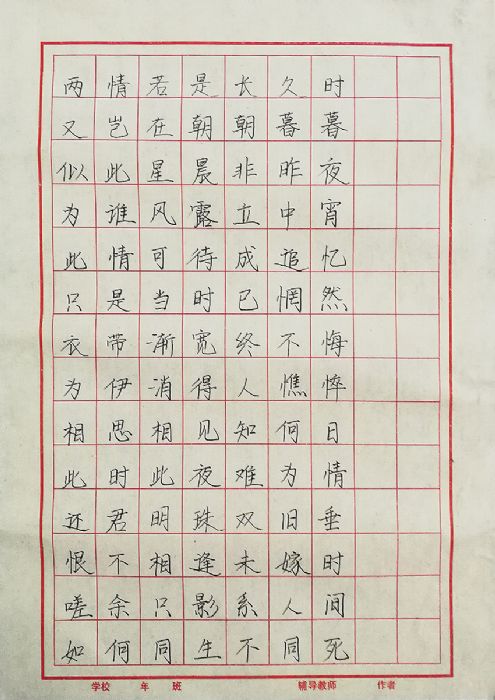 两情若是长久时
又岂在朝朝暮暮
似此星晨非昨夜
为谁风露立中宵
此情可待成追忆
只是当时已惘然
衣带渐宽终不悔
为伊消得人憔悴
相思相见知何日
此时此夜难为情
还君明珠双旧垂
恨不相逢未嫁时
嗟余只影系人间
如何同生不同死
学校 年 班 辅导教师 作者